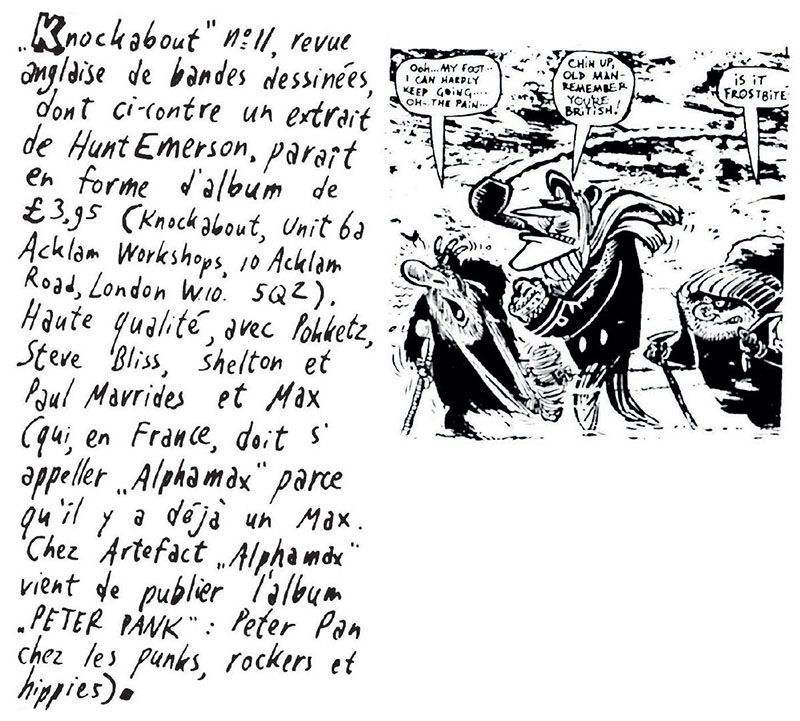 „Knockabout" nº11, revue
anglaise de bandes dessinées,
dont ci-contre un extrait
de Hunt Emerson, parait
en forme d'album de
£3,95 (Knockabout, Unit 6a
Acklam Workshops, 10 Acklam
Road, London W10. 5QZ).
Haute qualité, avec Pokketz,
Steve Bliss, Shelton et
Paul Mavrides et Max
(qui, en France, doit s'
appeller „Alphamax" parce
qu'il y a déjà un Max.
Chez Artefact „Alphamax"
vient de publier l'album
„PETER PANK": Peter Pan
chez les punks, rockers et
hippies).
OOH...MY FOOT..
I CAN HARDLY
KEEP GOING....
OH..THE PAIN...
CHIN UP,
OLD MAN-
REMEMBER
YOU'RE
BRITISH!
IS IT
FROSTBITE